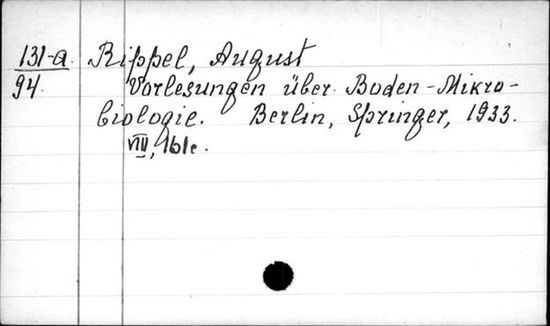 131-a. Rippel, August
94. Vorlesungen über Boden-Mikro-
biologie. Berlin, Springer, 1933.
VIII, 161 c.